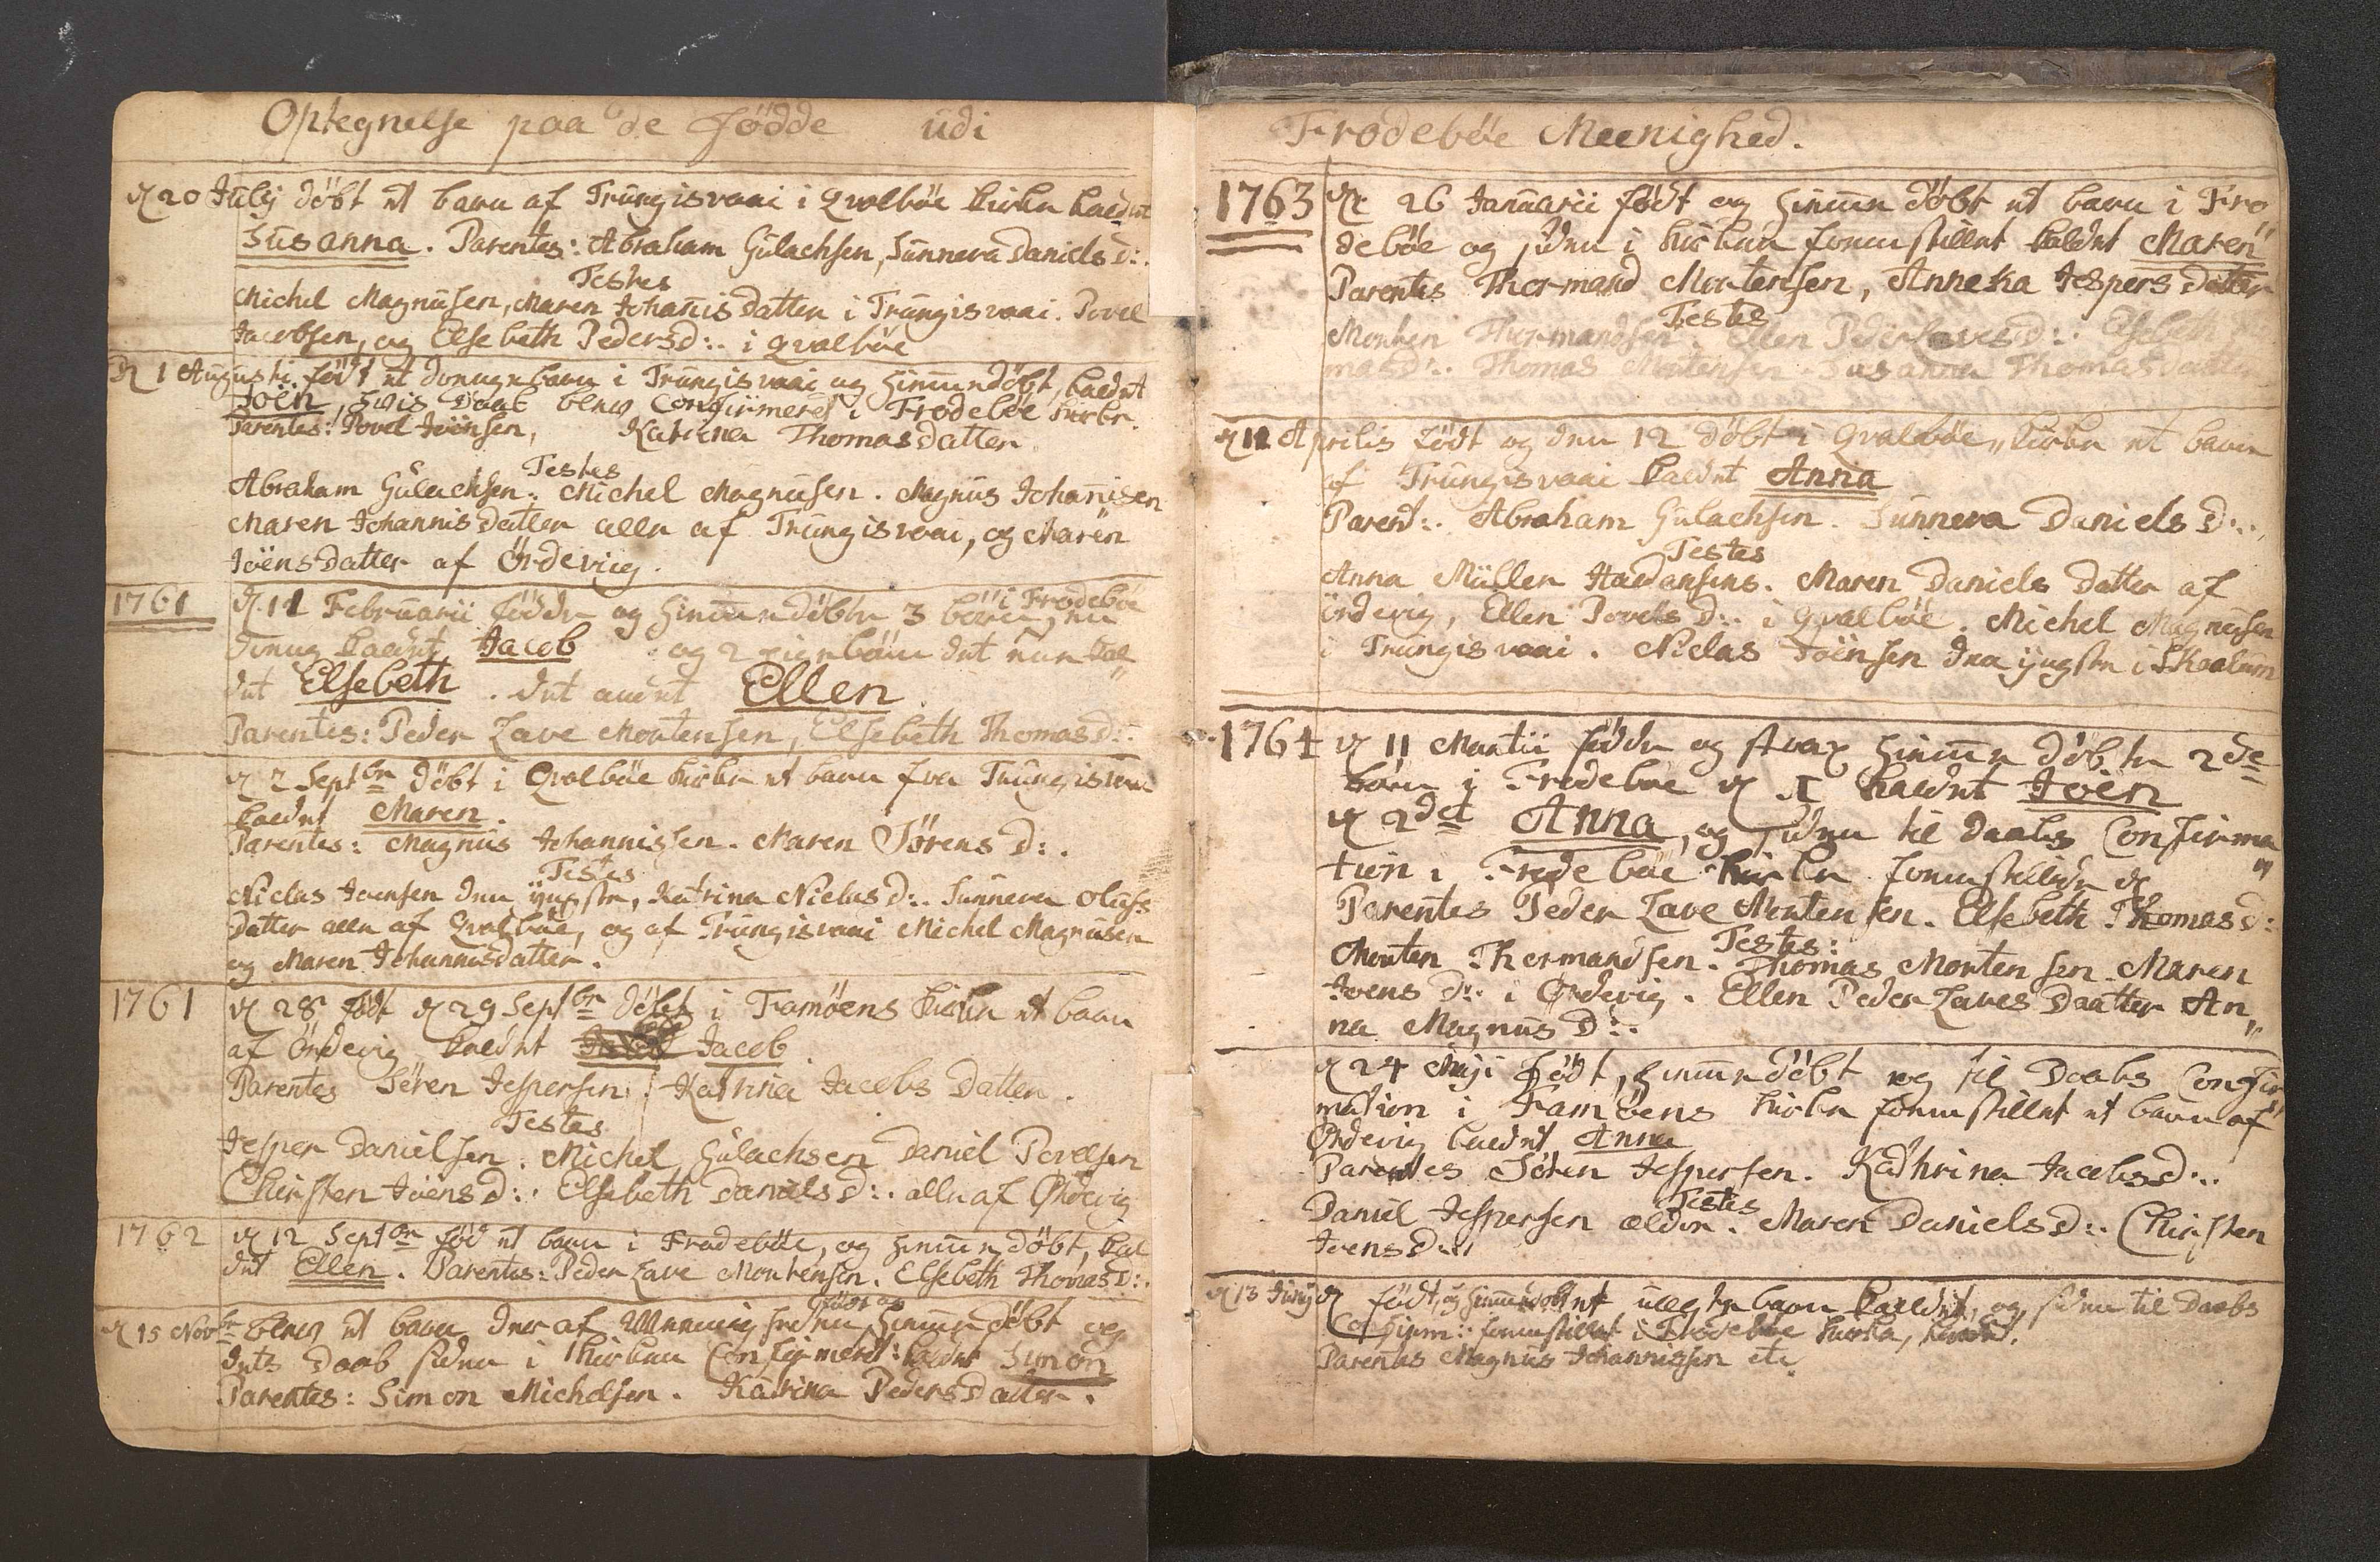 Optegnelse paa de Födde udi
d 20 Julij döbt et barn af Trungisvaai i Qvalböe kirke kaldet
Susanna. Parentes: Abraham Gulachsen, Sunneva Daniels D:.
Testes
Michel Magnusen, Maren Johanisdatter i Trungisvaai. Povel
Jacobsen, og Elsebeth Pedersd:. i Qvalböe
d 1 Augusti födt et drenge barn i Trungisvaai og hiemmedöbt, kaldet
Joen, hvis Daab blev Confirmeret i Frodeböe kirke.
Parentes: Povel Joensen, Katrina Thomasdatter
Testes
Abraham Gulachsen. Michel Magnusen. Magnus Johanisen
Maren Johannisdatter alle af Trungisvaai, og Maren
Joensdatter af Ördeviig.
1761 d. 11 Februarii födde og hiemmedöbte 3 börn, en i Frodeböe
dreng kaldet Jacob og 2 pigebörn det eene kal
det Elsebeth. det andet Ellen.
Parentes: Peder Lave Mortensen, Elsebeth Thomasd:.
d 2 Septbr döbt i Qvalböe kirke et barn fra Trungisvaai
kaldet Maren.
Parentes: Magnus Johannissen. Maren Sörens D:.
Testes
Niclas Joensen den yngste, Katrina Niclasd:. Sunneva Olufs
datter alle af Qvalböe, og af Trungisvaai Michel Magnusen
og Maren Johannisdatter.
1761 d 28 födt d 29 Septbr döbt i Famöens kirke et barn
af Ördevig kaldet Jacob.
Parentes Sören Jespersen, Kathrina Jacobs Datter.
Testes
Jesper Danielsen. Michel Gulachsen Daniel Povelsen
Chirsten Joens D:. Elsebeth Daniels D:. alle af Ördevig
1762 d 12 Septbr föd et barn i Frodeböe, og hiemmedöbt, kal
det Ellen. Parentes: Peder Lave Mortensen. Elsebeth Thomasd:.
d 15 Novbr blev et barn födt og hiemmedöbt og
dets Daab siden i Kirken Confirmeret: kaldet Simon
Parentes: Simon Michelsen. Katrina Pedersdatter.
Frodeböe Meenighed.
1763 d 26 Januarii födt og hiemme döbt et barn i Fro"
deböe og siden i kirken fremstillet kaldet Maren
Parentes Thormand Mortensen, Anneka Jespers Datter
Testes
Morten Thormandsen. Ellen Peder Lavesd:. Elsebeth
masd:. Thomas Mortensen. Susanna Thomasdatter
d 11 Aprilis födt og den 12 döbt i Qvalböe kirke et barn
af Trungisvaai kaldet Anna
Parent:. Abraham Gulachsen. Sunneva Daniels D:.
Testes
Anna Müller Maren Daniels Datter af
Ördevig, Ellen Povels D:. i Qvalböe. Michel Magnusen
i Trungisvaai. Niclas Joensen den yngste i
1764 d 11 Martii födde og strax hiemme döbte 2de
börn i Frodeböe d I kaldet Joen
d 2det Anna, og siden til Daabs Confirma"
tion i Frodeböe kirke fremstillede
Parentes Peder Lave Mortensen. Elsebeth Thomas D:
Testes:
Morten Thormandsen. Thomas Mortensen Maren
Joens D:. i Ördevig. Ellen Peder Laves Daatter An"
na Magnus D:.
d 24 Maji Födt, hiemmedöbt og til Daabs Confir"
mation i Famöens kirke fremstillet et barn af
Ördevig kaldet Anna
Parentes Sören Jespersen. Kathrina Jacobsd:.
Testes
Daniel Jespersen ældre. Maren Daniels D:. Chirsten
Joens D:.
d 13 Junij födt, og hiemmedöbt et uægte barn kaldet, og siden til Daabs
Confirm:. fremstillet i Frodeböe kirke,
Parentes Magnus Johannissen etc.